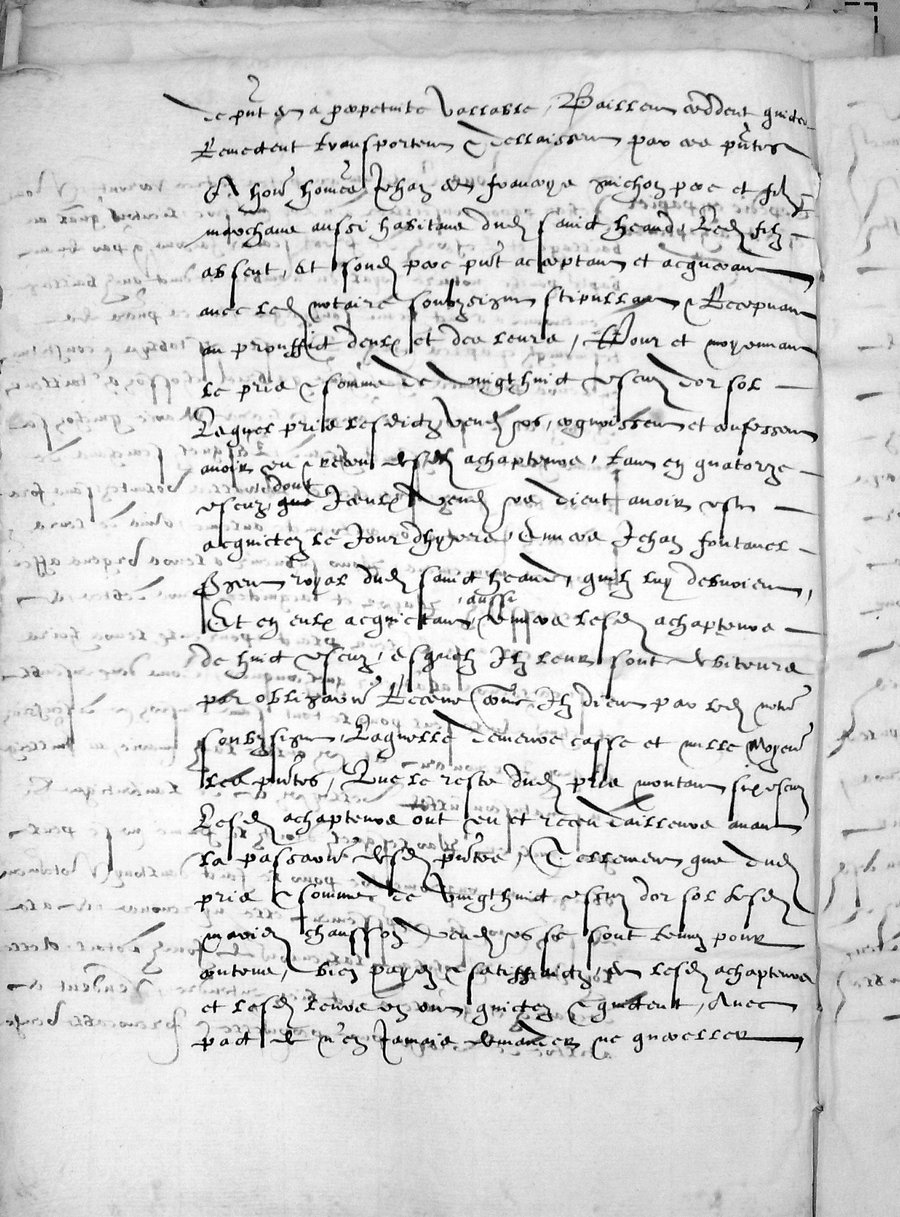 de pnt & a perpetuite vallable, Baillent ceddent quictent
Remectent transportent & dellaissent par ces pntes
A honn homes Jehan & francoys michon pere et filz
marchans aussi habitans dud sainct heand, Led filz
absent, Et sond pere pnt acceptant et acquerant
avec led notaire soubzsigne stipullant & Recepvant
au prouffict deulx et des leurs, Pour et moyennant
le pris & somme de vingthuict escuz dor sol
Laquel pris lesdictz vendeurs, cognoissent et confessent
avoir eu & receu desd achapteurs, tant en quatorze
escuz, dont Iceulx vendeurs dient avoir este
acquictez le Jourdhyers, envers Jehan fontanel
sergent royal dud sainct heand, quilz luy debvoient,
Et en eulx acquictant, aussi envers lesd achapteurs
de huict escuz, esquelz Ilz leur sont debiteurs
par obligaon Receue come Ilz dient par led notre
soubzsigne, Laquelle demeure casse et nulle moyent
les pntes, Que le reste dud pris montant six escuz
Lesd achapteurs ont eu et receu dailleurs avant
la passaon desd pntes, Tellement que dud
pris & somme de vingthuict escuz dor sol lesd
mariez chausson vendeurs se sont tenuz pour
contens, bien payez & satisffaictz, & lesd achapteurs
et lesd leurs en ont quictez & quictent, Avec
pact de n'en Jamais demander ne quereller